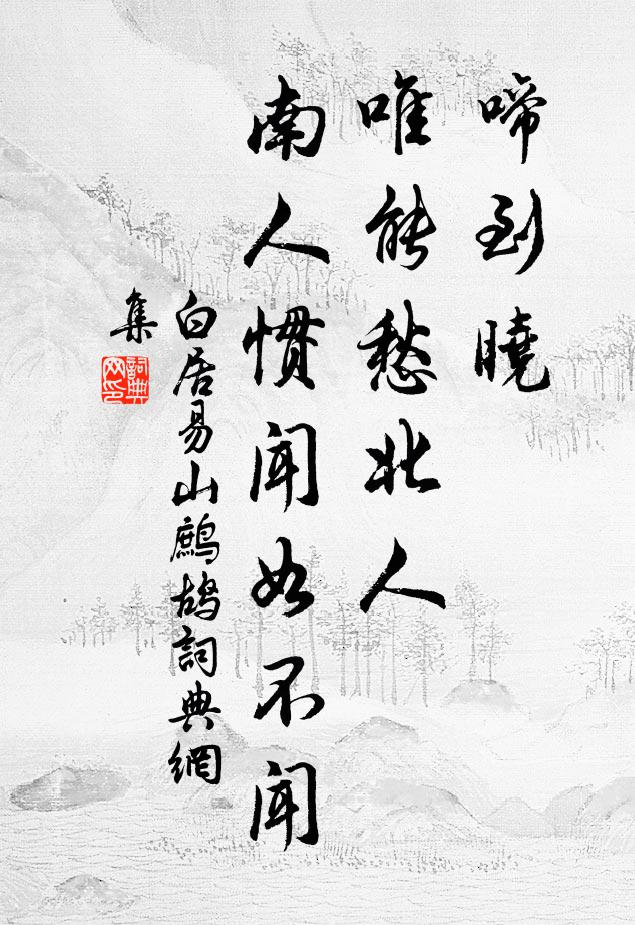 啼到曉
唯能愁北人
南人慣聞如不聞
白居易山鷓鴣詞典網
集
詞典
网印